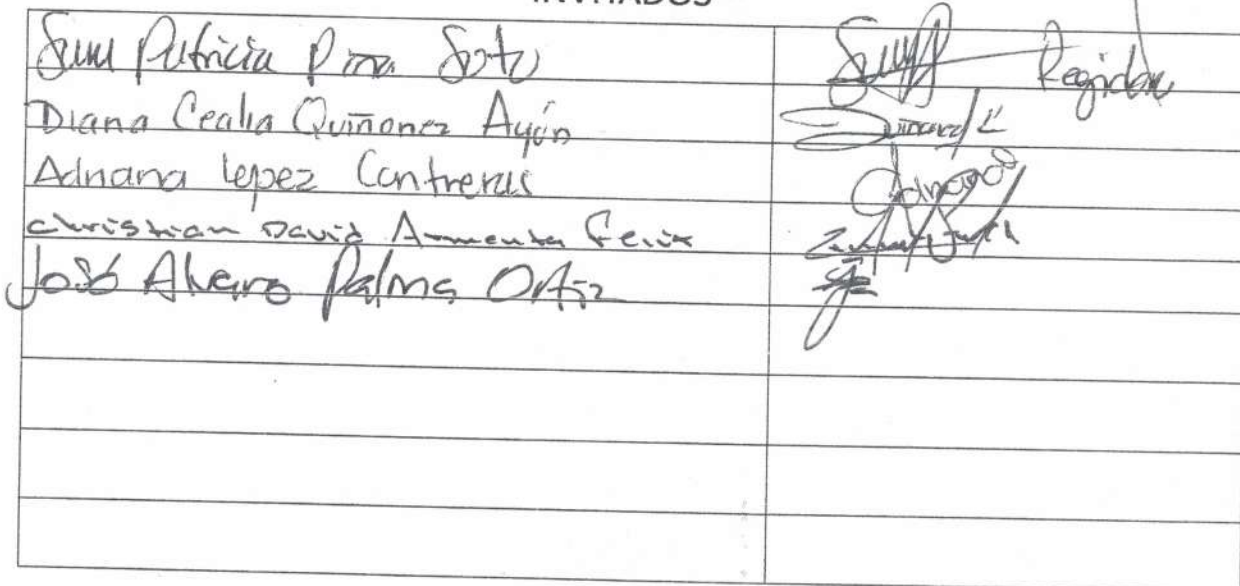 INVITADOS
Patricia Soto Regidora
Diana Cealia Quiñonez Ayón
Adriana Lopez Contreras Adriana
Christian David Armenta Felix
José Alvaro Palma Ortiz